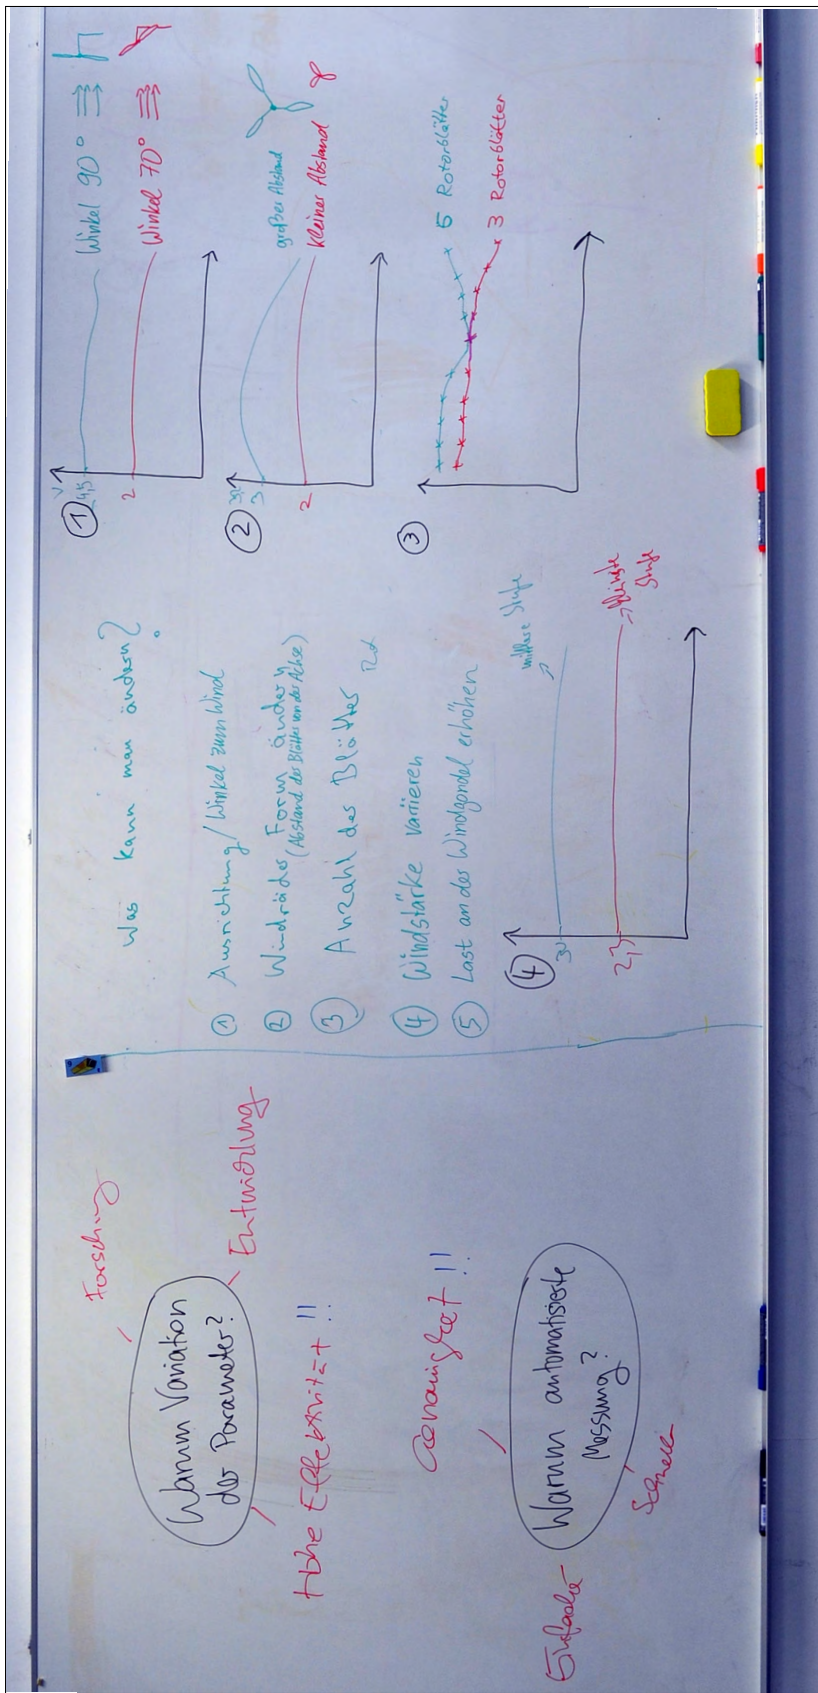 Forschung
Warum Variation
der Parameter?
Entwicklung
Hohe Effektivität !!
Genauigkeit !!
Warum automatisierte
Messung?
Einfacher
Schneller
Was kann man ändern?
① Ausrichtung / Winkel zum Wind
② Windräder Form ändern
(Abstand der Blätter von der Achse)
③ Anzahl der Blätter
④ Windstärke variieren
⑤ Last an der Windgondel erhöhen
④
3
2,3
mittlere Stufe
kleinste
Stufe
①
V
4,5
2
Winkel 90°
Winkel 70°
②
3
2
großer Abstand
kleiner Abstand
③
5 Rotorblätter
3 Rotorblätter